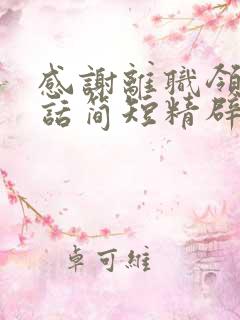 感謝離職領
話简短精辟
卓可維